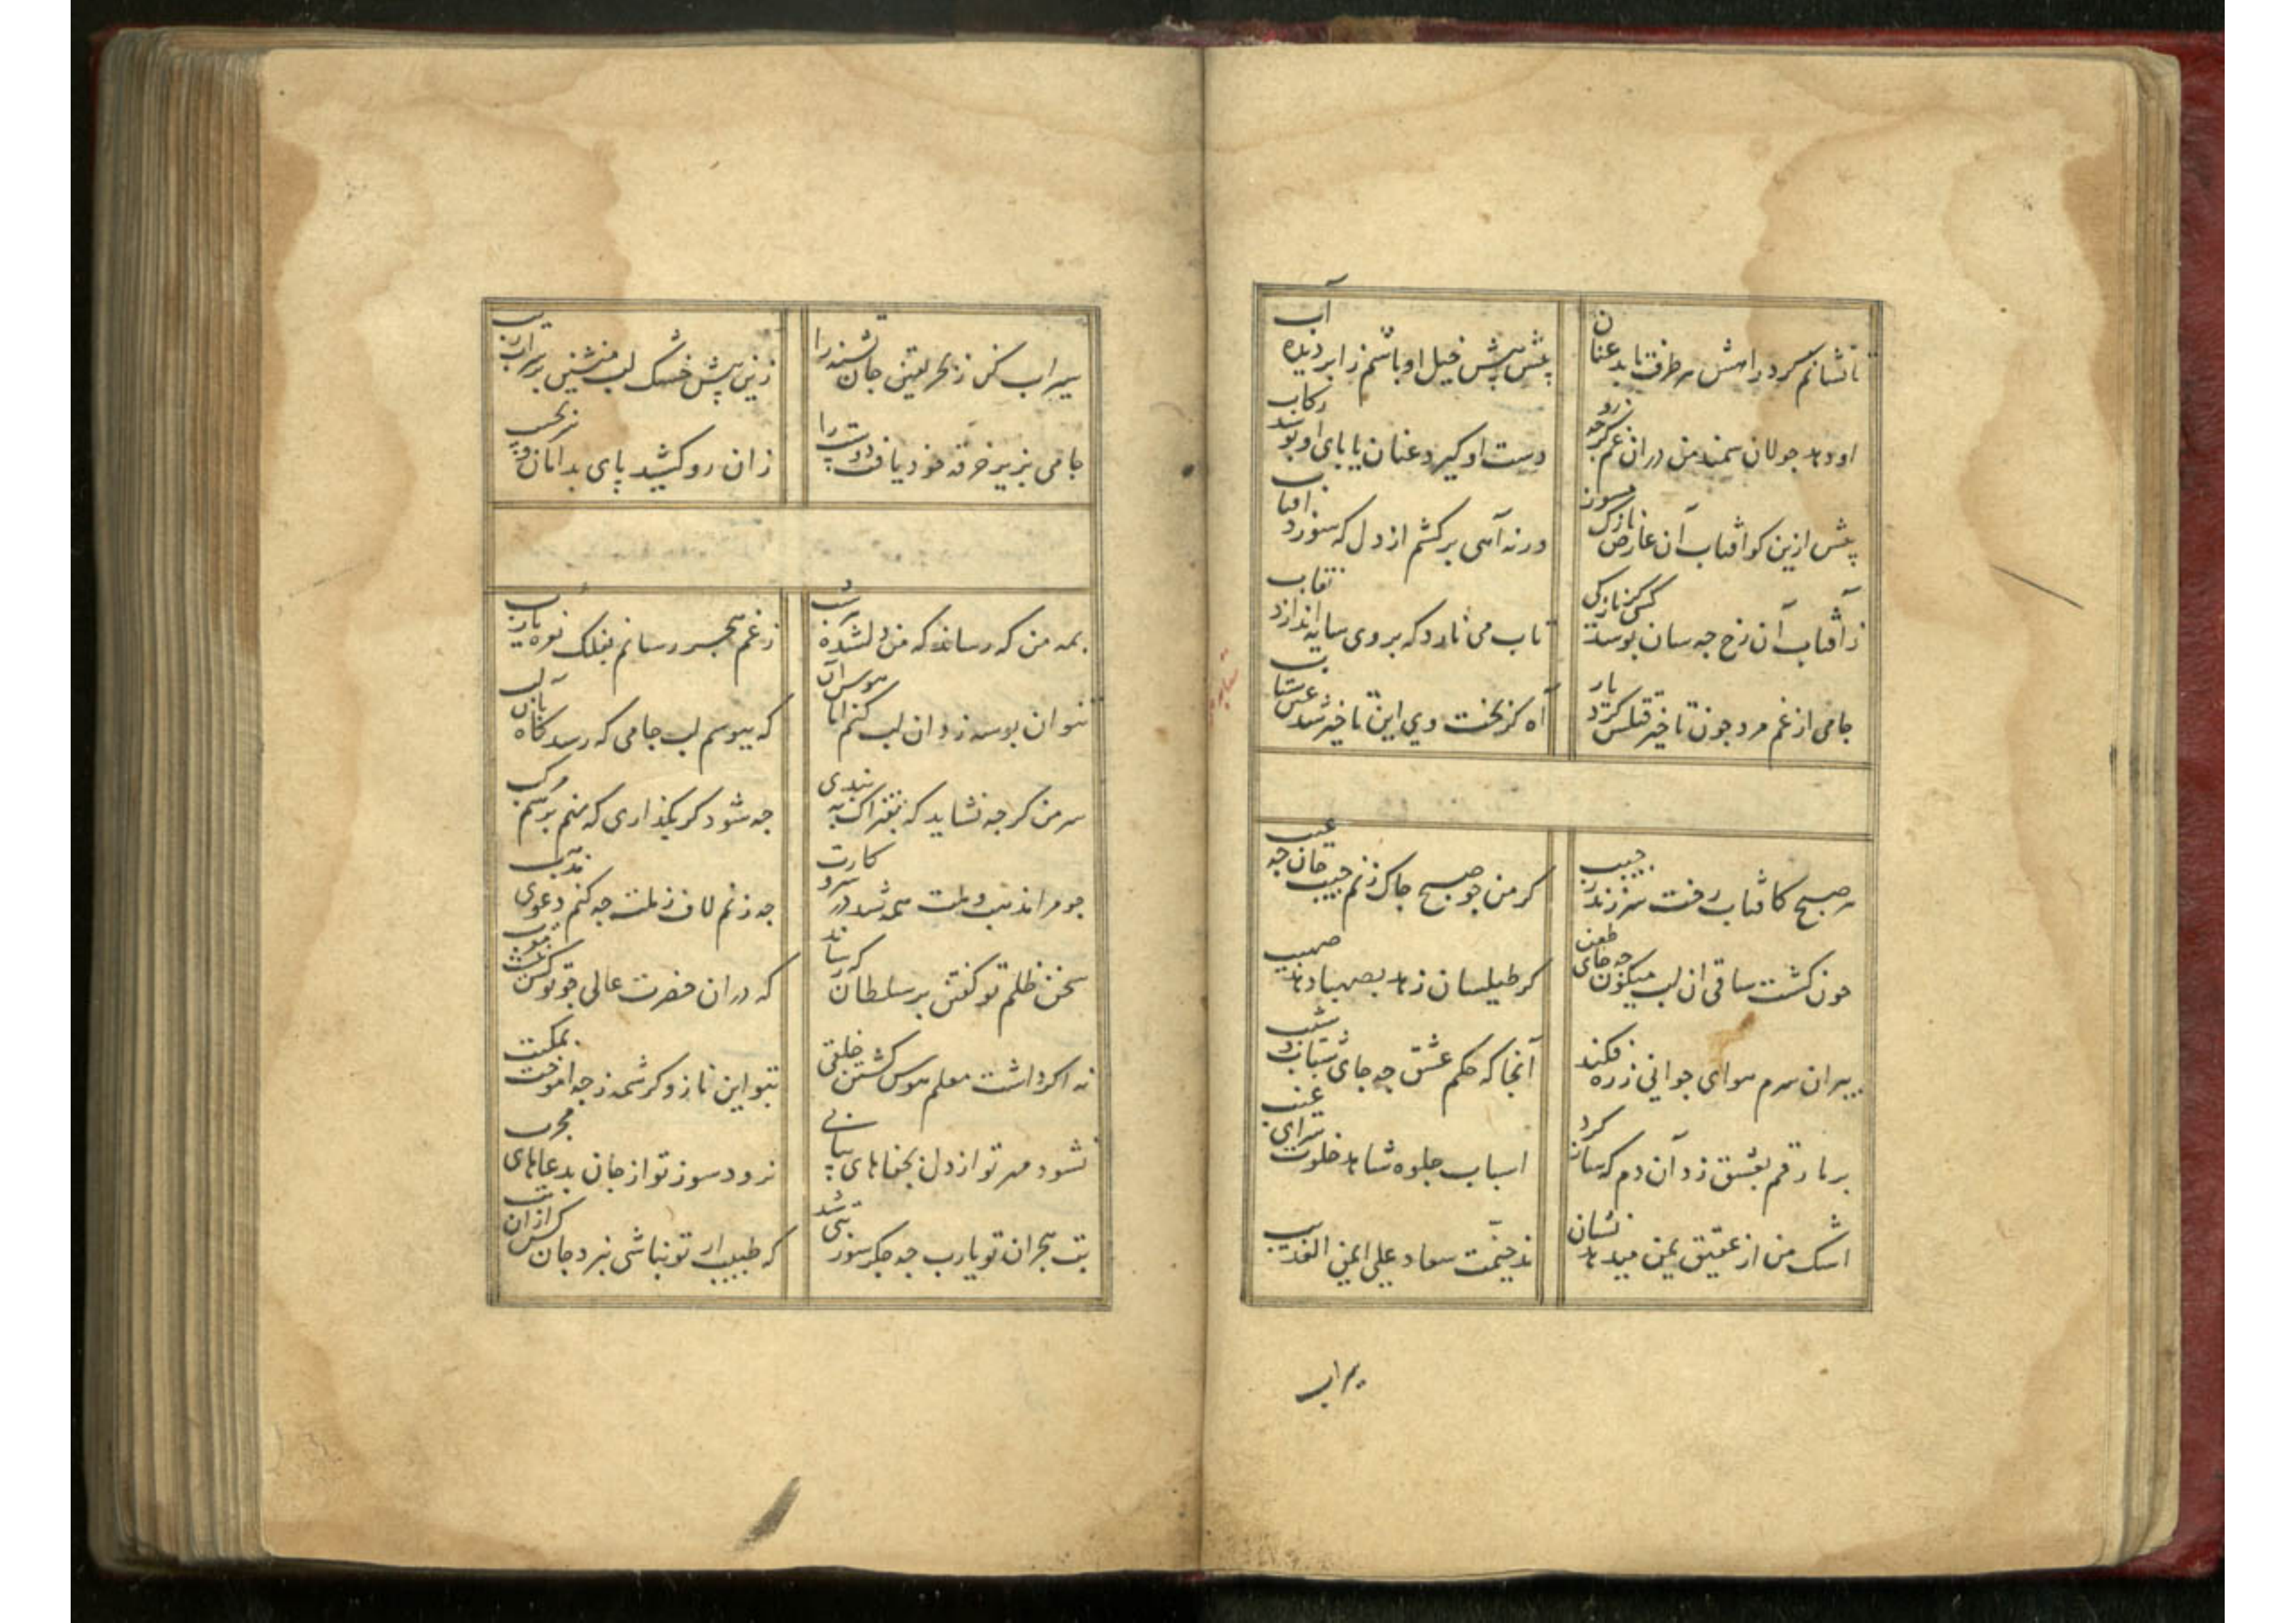 تا نشانم کرد راهش هر طرف تابد عنان
پیش پیش خیل او باشم ز ابر دیده آب
او دهد جولان سمند من در آن غم کز چه رو
دست او گیرد عنان یا پای او بوسد رکاب
پیش ازین کو آفتاب آن عارض نازک مسوز
ورنه آهی برکشم از دل که سوزد آفتاب
ز آفتاب آن رخ چه سان بوسد کسی کز نازکی
تاب می نارد که بر وی سایه اندازد نقاب
جامی از غم مرد چون تاخیر قتلش کرد یار
آه کز بخت وی این تاخیر شد عین شتاب
هر صبح کافتاب رخت سر زند ز جیب
گر من چو صبح چاک زنم جیب جان چه عیب
چون گشت ساقی آن لب میگون چه جای طعن
گر طیلسان زهد بصهبا دهد صهیب
پیران سرم هوای جوانی ز ره فکند
آنجا که حکم عشق چه جای شباب و شیب
بر ما رقم بعشق زد آن دم که ساز کرد
اسباب جلوه شاهد خلوت سرای غیب
اشک من از عقیق یمن میدهد نشان
مذ خیمت سعاد علی ایمن الغدیب
سیراب
سیراب کن ز بحر یقین جان تشنه را
زین بیش خشک لب منشین بر سراب ریب
جامی بزیر خرقه خود یافت دوست را
زان رو کشید پای بدامان و سر بجیب
بمه من که رساند که من دلشده هر شب
ز غم هجر رسانم بفلک نعره یارب
نتوان بوسه زد آن لب کنم اما هوس آن
که ببوسم لب جامی که رسد گاه بآن لب
سر من گرچه نشاید که بفتراک ببندی
چه شود گر بگذاری که نهم بر سم مرکب
چو مرا مذهب و ملت همه شد در سر و کارت
چه زنم لاف ز ملت چه کنم دعوی مذهب
سخن ظلم تو گفتن بر سلطان که رساند
که در آن حضرت عالی چو تو کس نیست مقرب
نه اگر داشت معلم هوس کشتن خلقی
بتو این ناز و کرشمه ز چه آموخت بمکتب
نشود مهر تو از دل بجفاهای پیاپی
نرود سوز تو از جان بدعاهای مجرب
تب هجران تو یارب چه جگرسوز تبی شد
که طبیب ار تو نباشی نبرد جان کس ازان تب